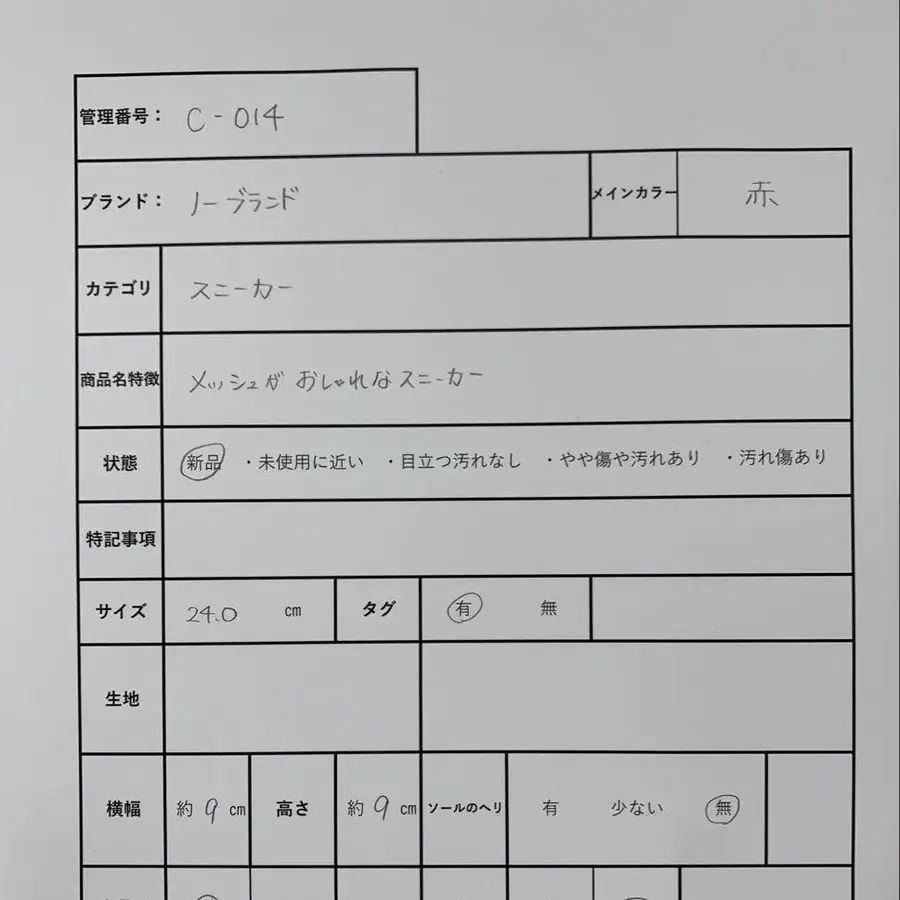 管理番号： C-014
ブランド： ノーブランド メインカラー 赤
カテゴリ スニーカー
商品名特徴 メッシュが おしゃれなスニーカー
状態 新品 ・未使用に近い ・目立つ汚れなし ・やや傷や汚れあり ・汚れ傷あり
特記事項
サイズ 24.0 cm タグ 有 無
生地
横幅 約 9 cm 高さ 約 9 cm ソールのヘリ 有 少ない 無